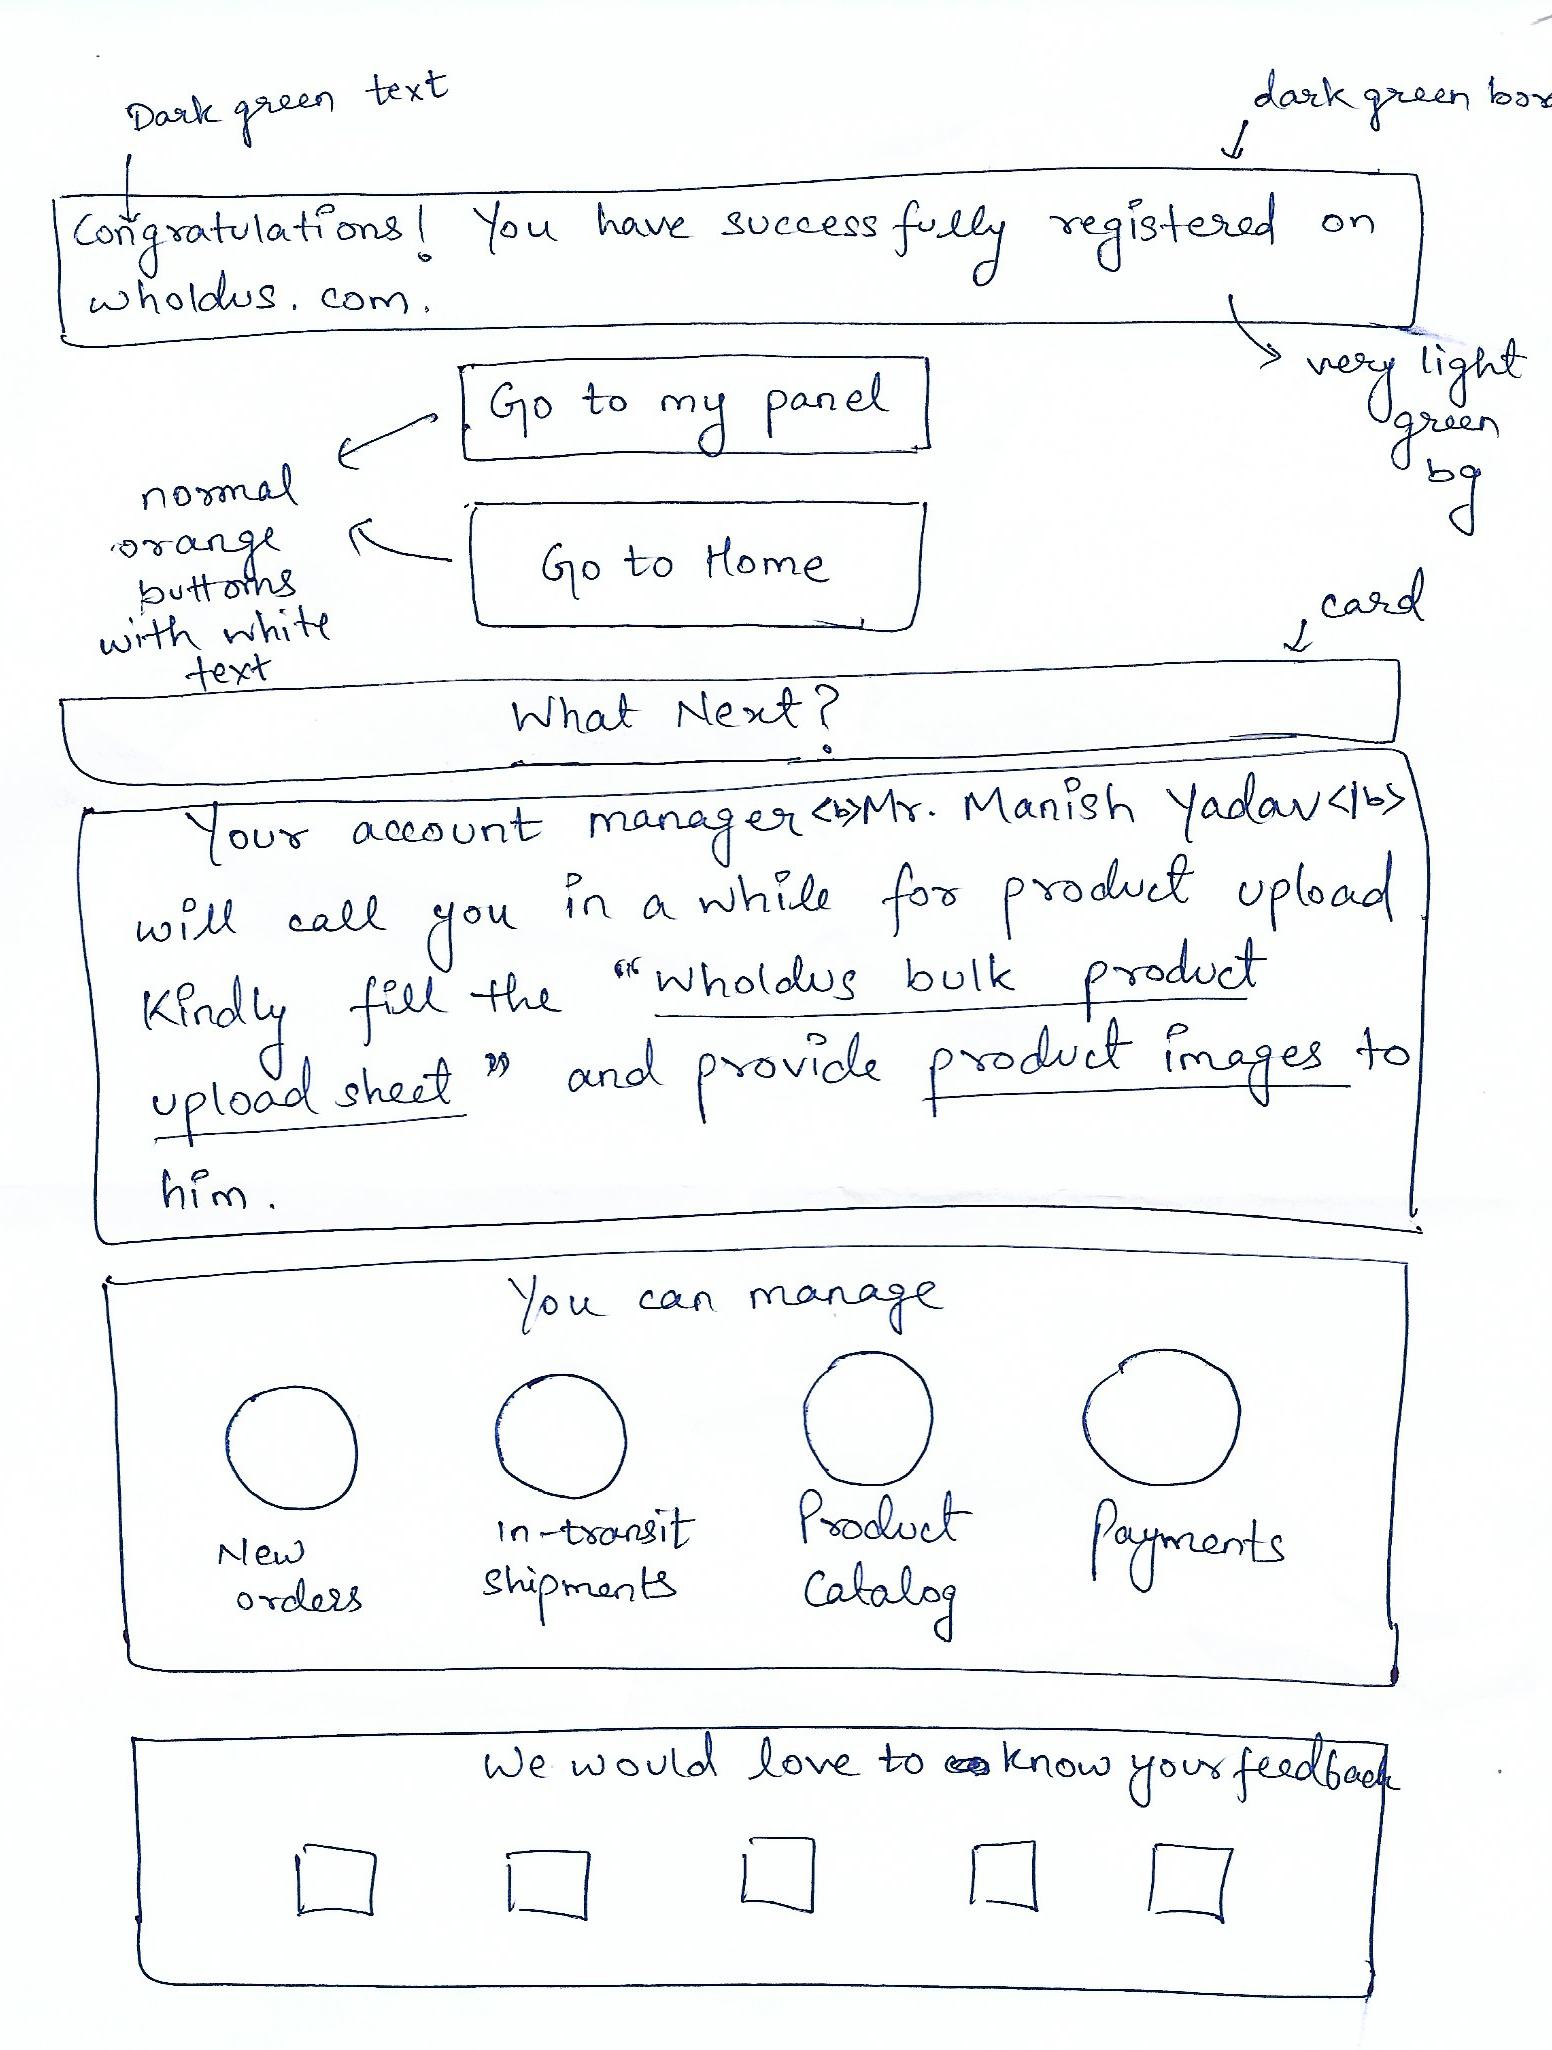 Dark green text
dark green box
Congratulations! You have successfully registered on
wholdus.com.
very light
green
bg
Go to my panel
normal
orange
buttons
with white
text
Go to Home
card
What Next?
Your account manager <b>Mr. Manish Yadav</b>
will call you in a while for product upload
Kindly fill the "Wholdus bulk product
upload sheet" and provide product images to
him.
You can manage
New
orders
in-transit
shipments
Product
Catalog
Payments
We would love to know your feedback